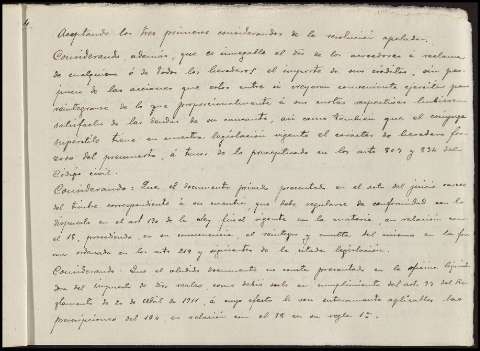 Aceptando los tres primeros considerandos de la resolución apelada.
Considerando además, que es innegable el dro de los acreedores á reclamar
de cualquiera ó de todos los herederos el importe de sus créditos, sin per-
juicio de las acciones que estos entre si creyeran conveniente ejercitar para
reintegrarse de lo que proporcionalmente á sus cuotas respectivas hubieran
satisfecho de las deudas de su causante, asi como tambien que el conyuge
superstite tiene en nuestra legislación vigente el caracter de heredero for-
zoso del premuerto, á tenor de lo preceptuado en los arts 807 y 834 del
Codigo civil.
Considerando: Que el documento privado presentado en el acto del juicio carece
del timbre correspondiente á su cuantia que debe regularse de conformidad con lo
dispuesto en el art 190 de la Ley fiscal vigente en la materia, en relación con
el 18, procediendo en su consecuencia, el reintegro y multa del mismo en la for-
ma ordenada en los arts 219 y siguientes de la citada legislación.
Considerando: Que el aludido documento no consta presentado en la oficina liquida-
dora del impuesto de dros reales como debió serlo en cumplimiento del art 93 del Re-
glamento de 20 de Abril de 1911, á cuyo efecto le son enteramente aplicables las
prescripciones del 194, en relación con el 98 en su regla 1ª.